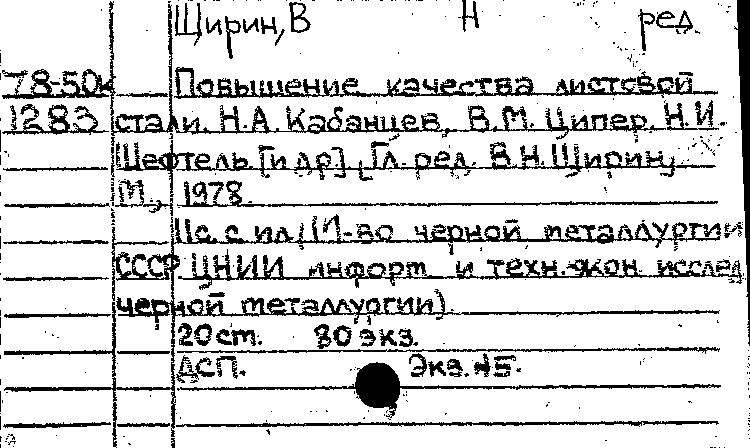 Щирин, В Н ред
78-50к Повышение качества листовой
1283 стали. Н.А. Кабанцев, В.М. Ципер, Н.И.
Шефтель [и др], Гл. ред. В.Н. Щирин,
М., 1978.
11с. с ил, (М-во черной металлургии
СССР ЦНИИ информ и техн.-экон. исслед
черной металлургии)
20 ст. 80 экз.
ДСП. Экз. №5.